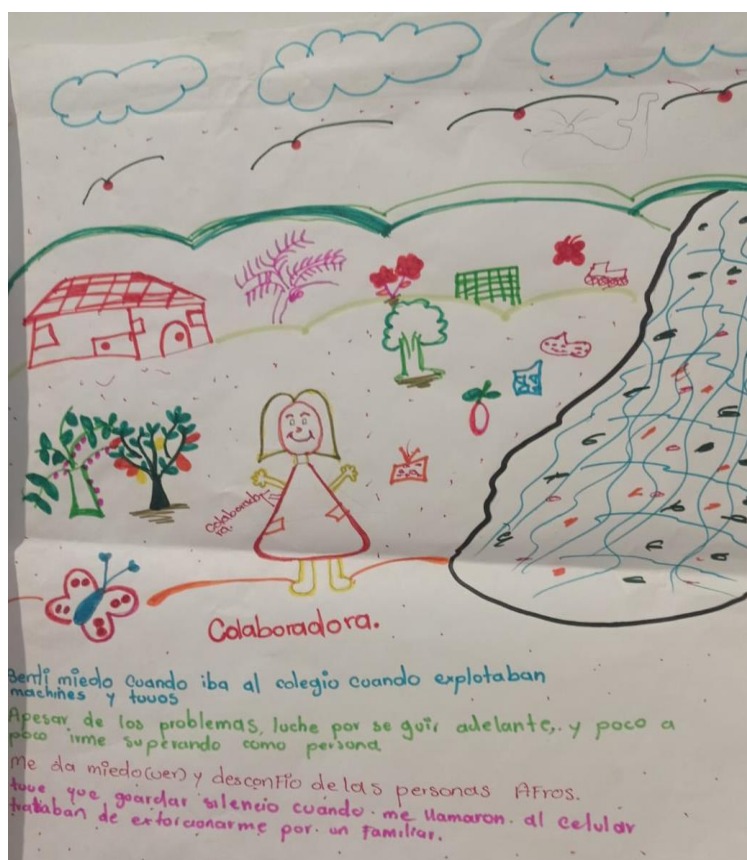 Colaborado
ra.
Colaboradora.
Sentí miedo cuando iba al colegio cuando explotaban
machines y tuvos
Apesar de los problemas, luche por se guir adelante,. y poco a
poco irme superando como persona
Me da miedo(ver) y desconfío de las personas Afros.
tuve que guardar silencio cuando. me llamaron. al celular
trataban de extorcionarme por. un familiar.